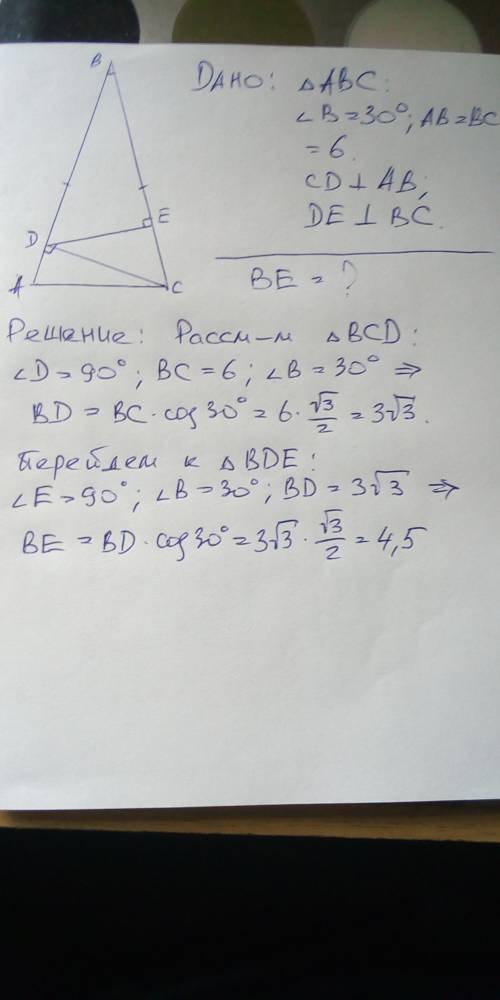 B
D
E
A
C
Дано: △ABC:
∠B=30°; AB=BC
=6.
CD⊥AB;
DE⊥BC.
BE=?
Решение: Рассм-м △BCD:
∠D=90°; BC=6; ∠B=30° ⇒
BD=BC·cos30°=6·√3/2=3√3.
Перейдем к △BDE:
∠E=90°; ∠B=30°; BD=3√3 ⇒
BE=BD·cos30°=3√3·√3/2=4,5